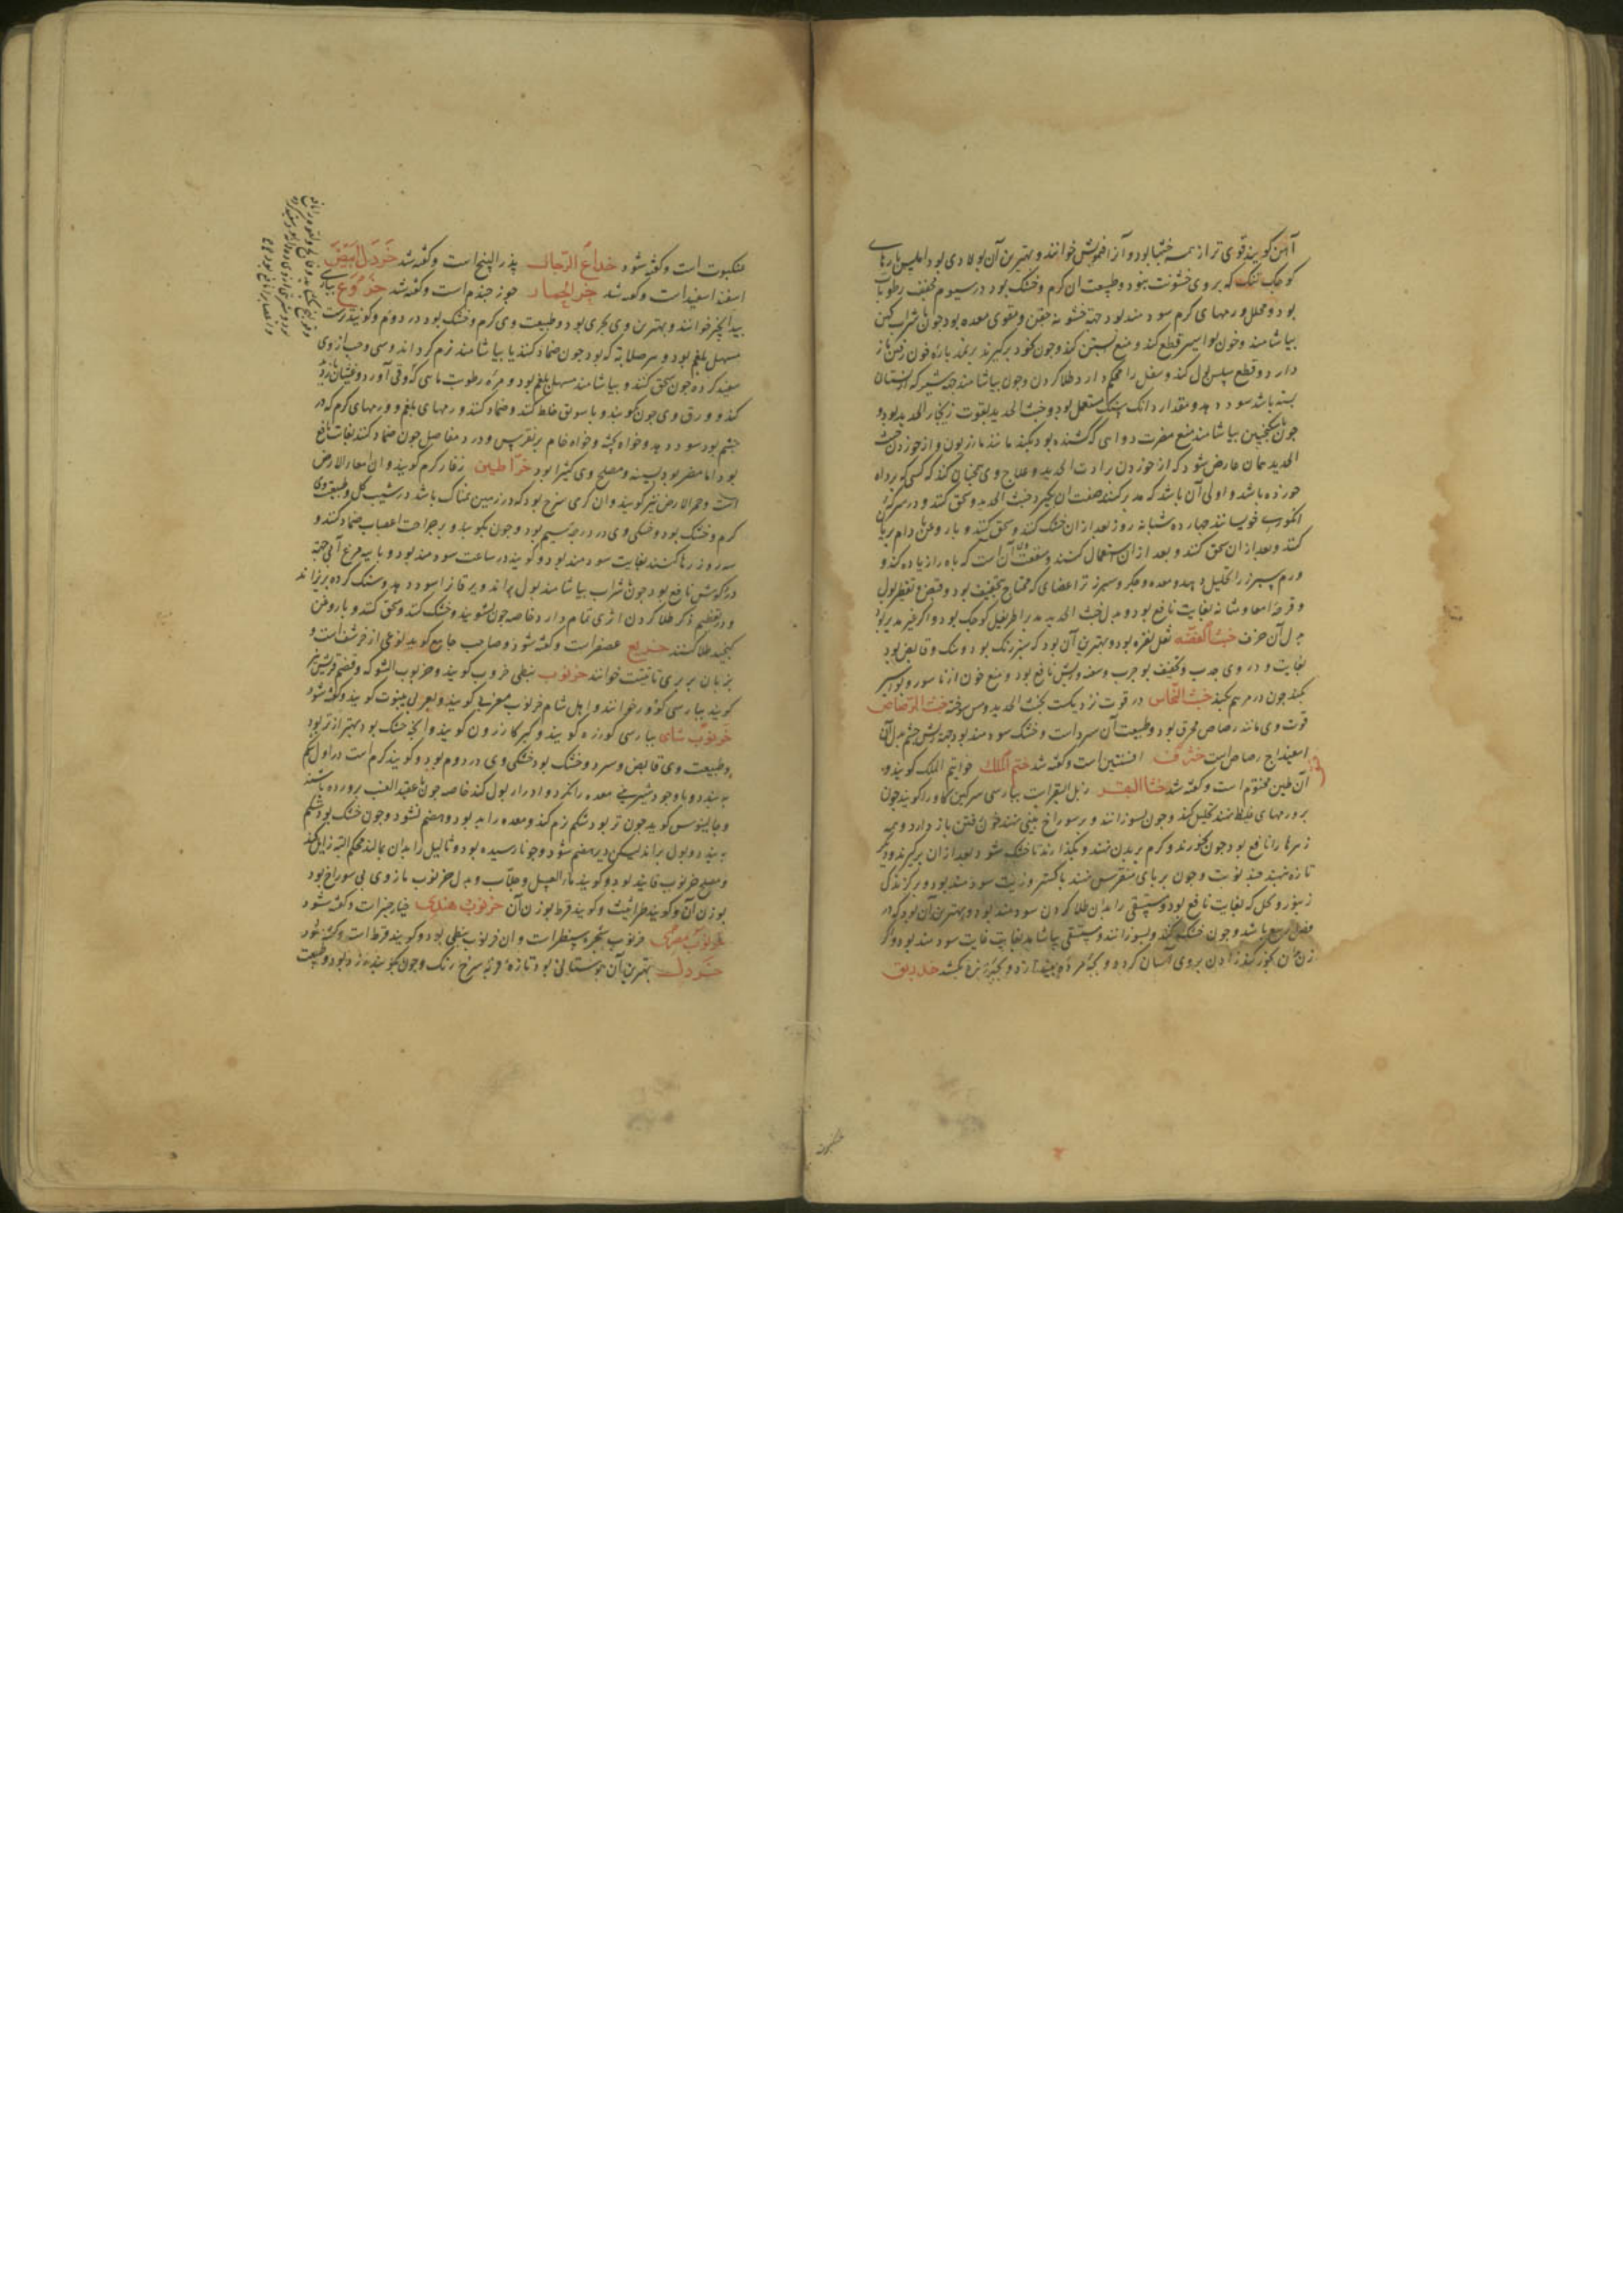 آهن گویند قوی تر از همه خبثها بود و آنرا خوانند و بهترین آن بولادی بود
کوچک تنک که بر وی خشونت نبود و طبیعت آن گرم و خشک بود در سیوم مخفف رطوبات
بود و محلل ورمهای گرم سودمند بود جهة خشونة جفن و مقوی معده بود چون با شراب کهن
بیاشامند و خون بواسیر قطع کند و منع آبستن کند و چون بخود برگیرند خون رفتن باز
دارد و قطع سلس بول کند و سفل را محکم دارد طلا کردن و چون بیاشامند
بسته باشد سود دهد و مقدار دانک مستعمل بود و خبث الحدید بقوت زنجار الحدید بود و
چون با سکنجبین بیاشامند منع مضرت دوای کشنده بود بکند مانند مازریون و از خوردن خبث
الحدید همان عارض شود که از خوردن برادت الحدید و علاج وی همچنان کند که کسی که براده
خورده باشد و اولی آن باشد که مدبر کنند صفت آن بگیرد خبث الحدید و سحق کنند و در سرکه
انگوری خویسانند چهارده شبانه روز بعد از آن خشک کنند و سحق کنند و با روغن بادام بریان
کنند و بعد از آن سحق کنند و بعد از آن استعمال کنند و منفعت آن آنست که باه را زیاده کند و
ورم سپرز را تحلیل دهد و معده و جگر و سپرز و اعضای که محتاج تخفیف بود و قبض و تقطیر بول
و قرحه امعا و مثانه بغایت نافع بود و بدل خبث الحدید مدبر اطریفل کوچک بود و اگر غیر مدبر بود
بدل آن خزف خبث الفضه ثفل نقره بود و بهترین آن بود که سبز رنگ بود و سبک و قابض بود
بغایت و در وی جذب و تخفیف بود جرب و سعفه و ریش نافع بود و منع خون از ناسور و بواسیر
بکند چون در مرهم کنند خبث النحاس در قوت نزدیکست بخبث الحدید و مس سوخته خبث الرصاص
قوت وی مانند رصاص محرق بود و طبیعت آن سرد است و خشک سودمند بود جهة ریش چشم بدل آن
اسفیداج رصاص است خترف افسنتین است و گفته شد ختم الملک خواتیم الملک گویند و
آن طین مختوم است و گفته شد خثا البقر زبل البقر است بپارسی سرگین گاو را گویند چون
بر ورمهای غلیظ نهند تحلیل کند و چون بسوزانند و بر سوراخ بینی نهند خون رفتن باز دارد و همه
زهرها را نافع بود چون بخورند و گرم بر بدن نهند و بگذارند تا خشک شود بعد از آن برگیرند و دیگر
تازه نهند چند نوبت و چون بر پای منقرس نهند با خاکستر و زیت سودمند بود و بر گزندگی
زنبور و نحل که بغایت نافع بود و مستسقی را بدان طلا کردن سودمند بود و بهترین آن بود که در
فصل ربیع باشد و چون خشک کنند و بسوزانند و مستسقی بیاشامد بغایت غایت سودمند بود و اگر
زن بدان بخور کند زادن بر وی آسان گردد و بچه مرده بیندازد و بچه زنده بکشد خدرنق
عنکبوت است و گفته شود خداع الرجال بذر البنج است و گفته شد خردل ابیض
اسفند اسفید است و گفته شد خرء الحمار جوز جندم است و گفته شد خروع بپارسی
بیدانجیر خوانند و بهترین وی بحری بود و طبیعت وی گرم و خشک بود در دوم و گویند تر است
مسهل بلغم بود و هر صلابه که بود چون ضماد کنند یا بیاشامند نرم گرداند و سی حب از وی
سفید کرده چون سحق کنند و بیاشامند مسهل بلغم بود و مره و رطوبت مائی که و قی آورد و غثیان زیاده
کند و ورق وی چون بکوبند و با سویق خلط کنند و ضماد کنند ورمهای بلغمی و ورمهای گرم که در
چشم بود سود دهد و خواه پخته و خواه خام بر نقرس و درد مفاصل چون ضماد کنند بغایت نافع
بود اما مضر بود بسینه و مصلح وی کثیرا بود خراطین زغار کرم گویند و آن امعاء الارض
است و حمر الارض نیز گویند و آن کرمی سرخ بود که در زمین نمناک باشد در شیب گل و طبیعت وی
گرم و خشک بود و خشکی وی در درجه سیم بود و چون بکوبند و بر جراحت اعصاب ضماد کنند و
سه روز رها کنند بغایت سودمند بود و گویند در ساعت سودمند بود و با پیه مرغ آبی جهة
درد گوش نافع بود چون با شراب بیاشامند بول براند و یرقان را سود دهد و سنگ گرده بریزاند
و در تعظیم ذکر طلا کردن اثری تمام دارد خاصه چون بشویند و خشک کنند و سحق کنند و با روغن
کنجید طلا کنند خریع عصفر است و گفته شود و صاحب جامع گوید نوعی از خرشف است و
بزبان بربری تافیت خوانند خرنوب نبطی خروب گویند و خرنوب الشوک و قضم قریش نیز
گویند بپارسی کوزور خوانند و اهل شام خرنوب معزی گویند و بعربی ینبوت گویند و گفته شود
خرنوب شامی بپارسی کورزه گویند و کبر کازرون گویند و آنچه خشک بود بهتر از تر بود
و طبیعت وی قابض و سرد و خشک بود خشکی وی در دوم بود و گویند گرم است در اول شکم
ببندد و با وجود شیرینی معده را نگزد و ادرار بول کند خاصه چون با عقید العنب پرورده باشند
و جالینوس گوید چون تر بود شکم نرم کند و معده را بد بود و هضم نشود و چون خشک بود شکم
ببندد و بول براند لیکن دیر هضم شود و چون نارسیده بود و ثالیل را بدان بمالند محکم البته زایل کند
و مصلح خرنوب فانید بود و گویند ماء العسل و عناب و بدل خرنوب مازوی بی سوراخ بود
بوزن آن و گویند طراثیث و گویند قرط بوزن آن خرنوب هندی خیار چنبر است و گفته شود
خرنوب مصری خرنوب شجره سنط است و آن خرنوب نبطی بود و گویند قرط است و گفته شود
خردل بهترین آن بوستانی بود تازه و فربه سرخ رنگ و چون بکوبند زرد بود و طبیعت